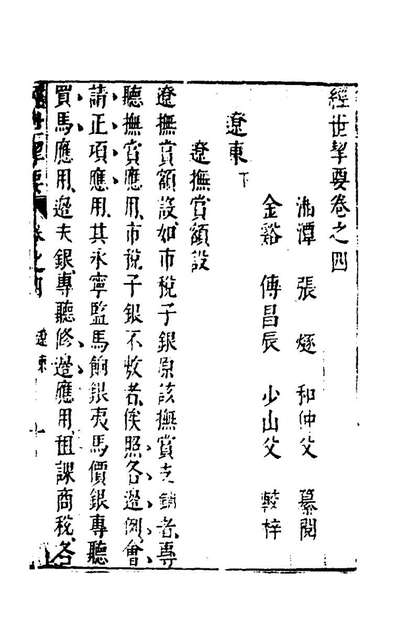 經世挈要卷之四
湘潭 張燧 和仲父 纂閱
金谿 傅昌辰 少山父 較梓
遼東下
遼撫賞額設
遼撫賞額設如市稅子銀原該撫賞支銷者專
聽撫賞應用市稅子銀不敷者俟照各邊例會
請正項應用其永寧監馬餉銀夷馬價銀專聽
買馬應用邊夫銀專聽修邊應用租課商稅各
經世挈要 卷之四 遼東 一